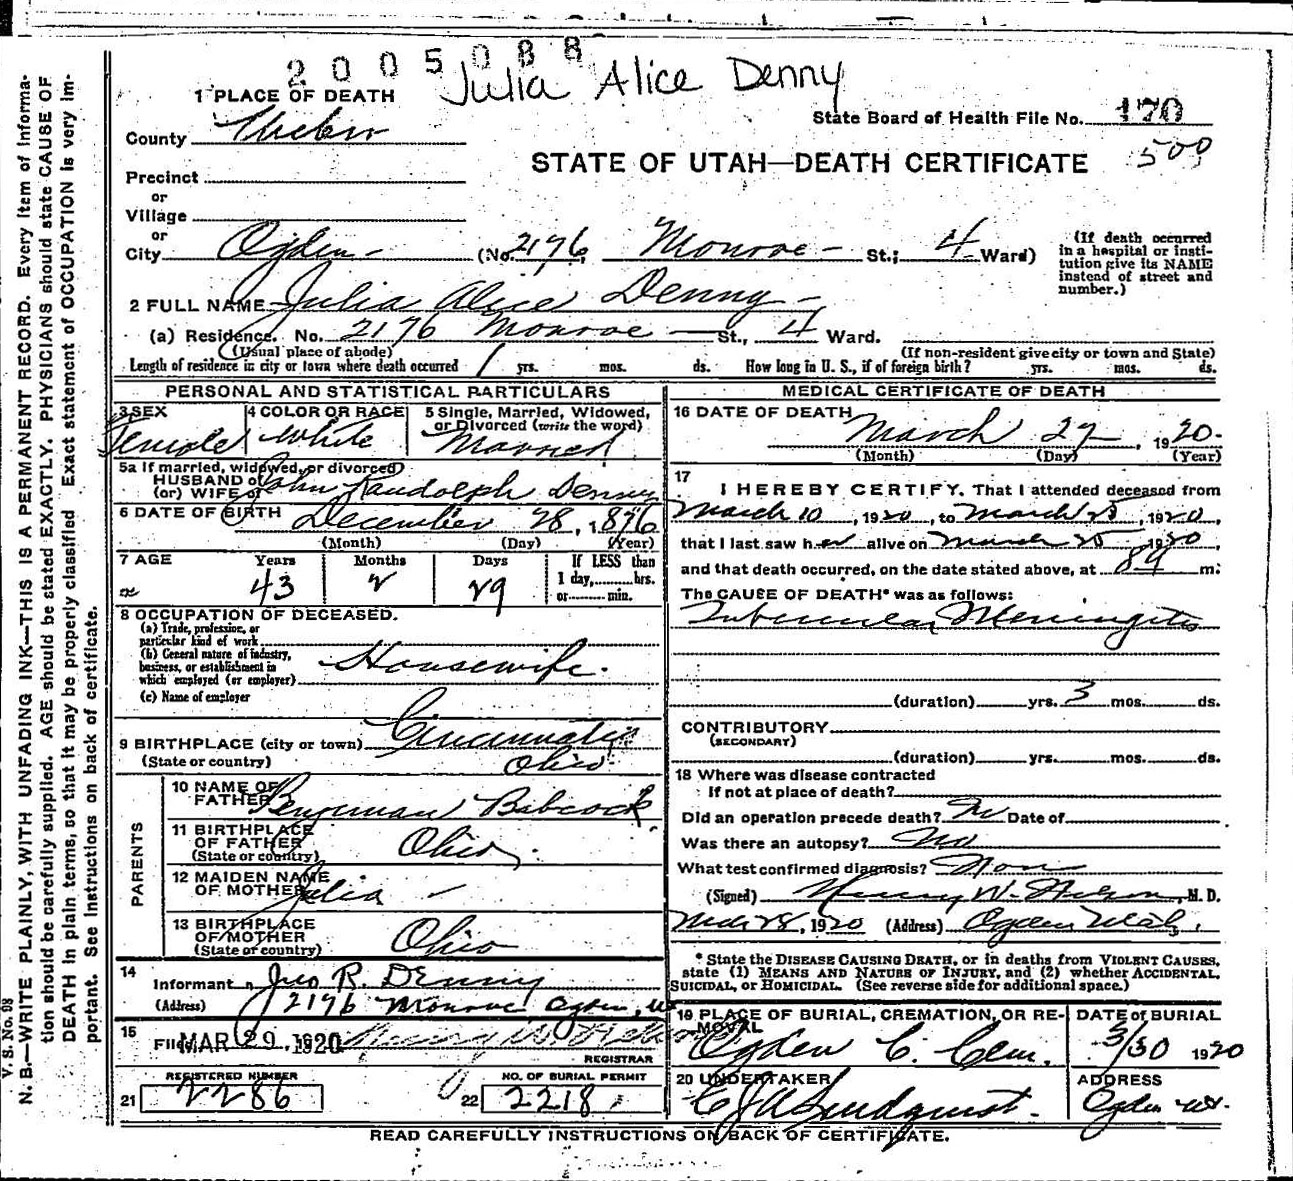 2005088
Julia Alice Denny
1 PLACE OF DEATH
State Board of Health File No. 170
County Weber
500
STATE OF UTAH—DEATH CERTIFICATE
Precinct
or
Village
or
City Ogden (No. 2176, Monroe St.; 4 Ward)
(If death occurred in a hospital or institution give its NAME instead of street and number.)
2 FULL NAME Julia Alice Denny
(a) Residence. No. 2176 Monroe St., 4 Ward.
(Usual place of abode) (If non-resident give city or town and State)
Length of residence in city or town where death occurred 1 yrs. mos. ds. How long in U. S., if of foreign birth? yrs. mos. ds.
PERSONAL AND STATISTICAL PARTICULARS
3 SEX Female
4 COLOR OR RACE White
5 Single, Married, Widowed, or Divorced (write the word)
Married
5a If married, widowed, or divorced
HUSBAND of
(or) WIFE of John Randolph Denny
6 DATE OF BIRTH December 28, 1876
(Month) (Day) (Year)
7 AGE Years Months Days If LESS than
43 2 29 1 day, hrs.
or min.
8 OCCUPATION OF DECEASED.
(a) Trade, profession, or
particular kind of work
(b) General nature of industry,
business, or establishment in
which employed (or employer) Housewife.
(c) Name of employer
9 BIRTHPLACE (city or town) Cincinnati
(State or country) Ohio
PARENTS
10 NAME OF
FATHER Babcock
11 BIRTHPLACE
OF FATHER Ohio
(State or country)
12 MAIDEN NAME
OF MOTHER Julia
13 BIRTHPLACE
OF MOTHER Ohio
(State or country)
14
Informant Jno R. Denny
(Address) 2176 Monroe, Ogden, Ut
15
Filed MAR 29, 1920
REGISTRAR
REGISTERED NUMBER NO. OF BURIAL PERMIT
21 2286 22 2218
MEDICAL CERTIFICATE OF DEATH
16 DATE OF DEATH
March 27, 1920
(Month) (Day) (Year)
17
I HEREBY CERTIFY. That I attended deceased from
March 10, 1920, to March 25, 1920,
that I last saw her alive on March 25 1920
and that death occurred, on the date stated above, at m.
The CAUSE OF DEATH* was as follows:
Tubercular Meningitis
(duration) yrs. 3 mos. ds.
CONTRIBUTORY
(SECONDARY)
(duration) yrs. mos. ds.
18 Where was disease contracted
If not at place of death?
Did an operation precede death? No Date of
Was there an autopsy? No
What test confirmed diagnosis? Non
(Signed) Henry W. Nelson, M. D.
Mar 28, 1920 (Address) Ogden Utah.
* State the DISEASE CAUSING DEATH, or in deaths from VIOLENT CAUSES,
state (1) MEANS AND NATURE OF INJURY, and (2) whether ACCIDENTAL,
SUICIDAL, or HOMICIDAL. (See reverse side for additional space.)
19 PLACE OF BURIAL, CREMATION, OR REMOVAL
Ogden C. Cem.
DATE of BURIAL
3/30 1920
20 UNDERTAKER
C J A Lindquist.
ADDRESS
Ogden Ut.
READ CAREFULLY INSTRUCTIONS ON BACK OF CERTIFICATE.
V. S. No. 98
N. B.—WRITE PLAINLY, WITH UNFADING INK—THIS IS A PERMANENT RECORD. Every item of informa-
tion should be carefully supplied. AGE should be stated EXACTLY. PHYSICIANS should state CAUSE OF
DEATH in plain terms, so that it may be properly classified. Exact statement of OCCUPATION is very im-
portant. See Instructions on back of certificate.